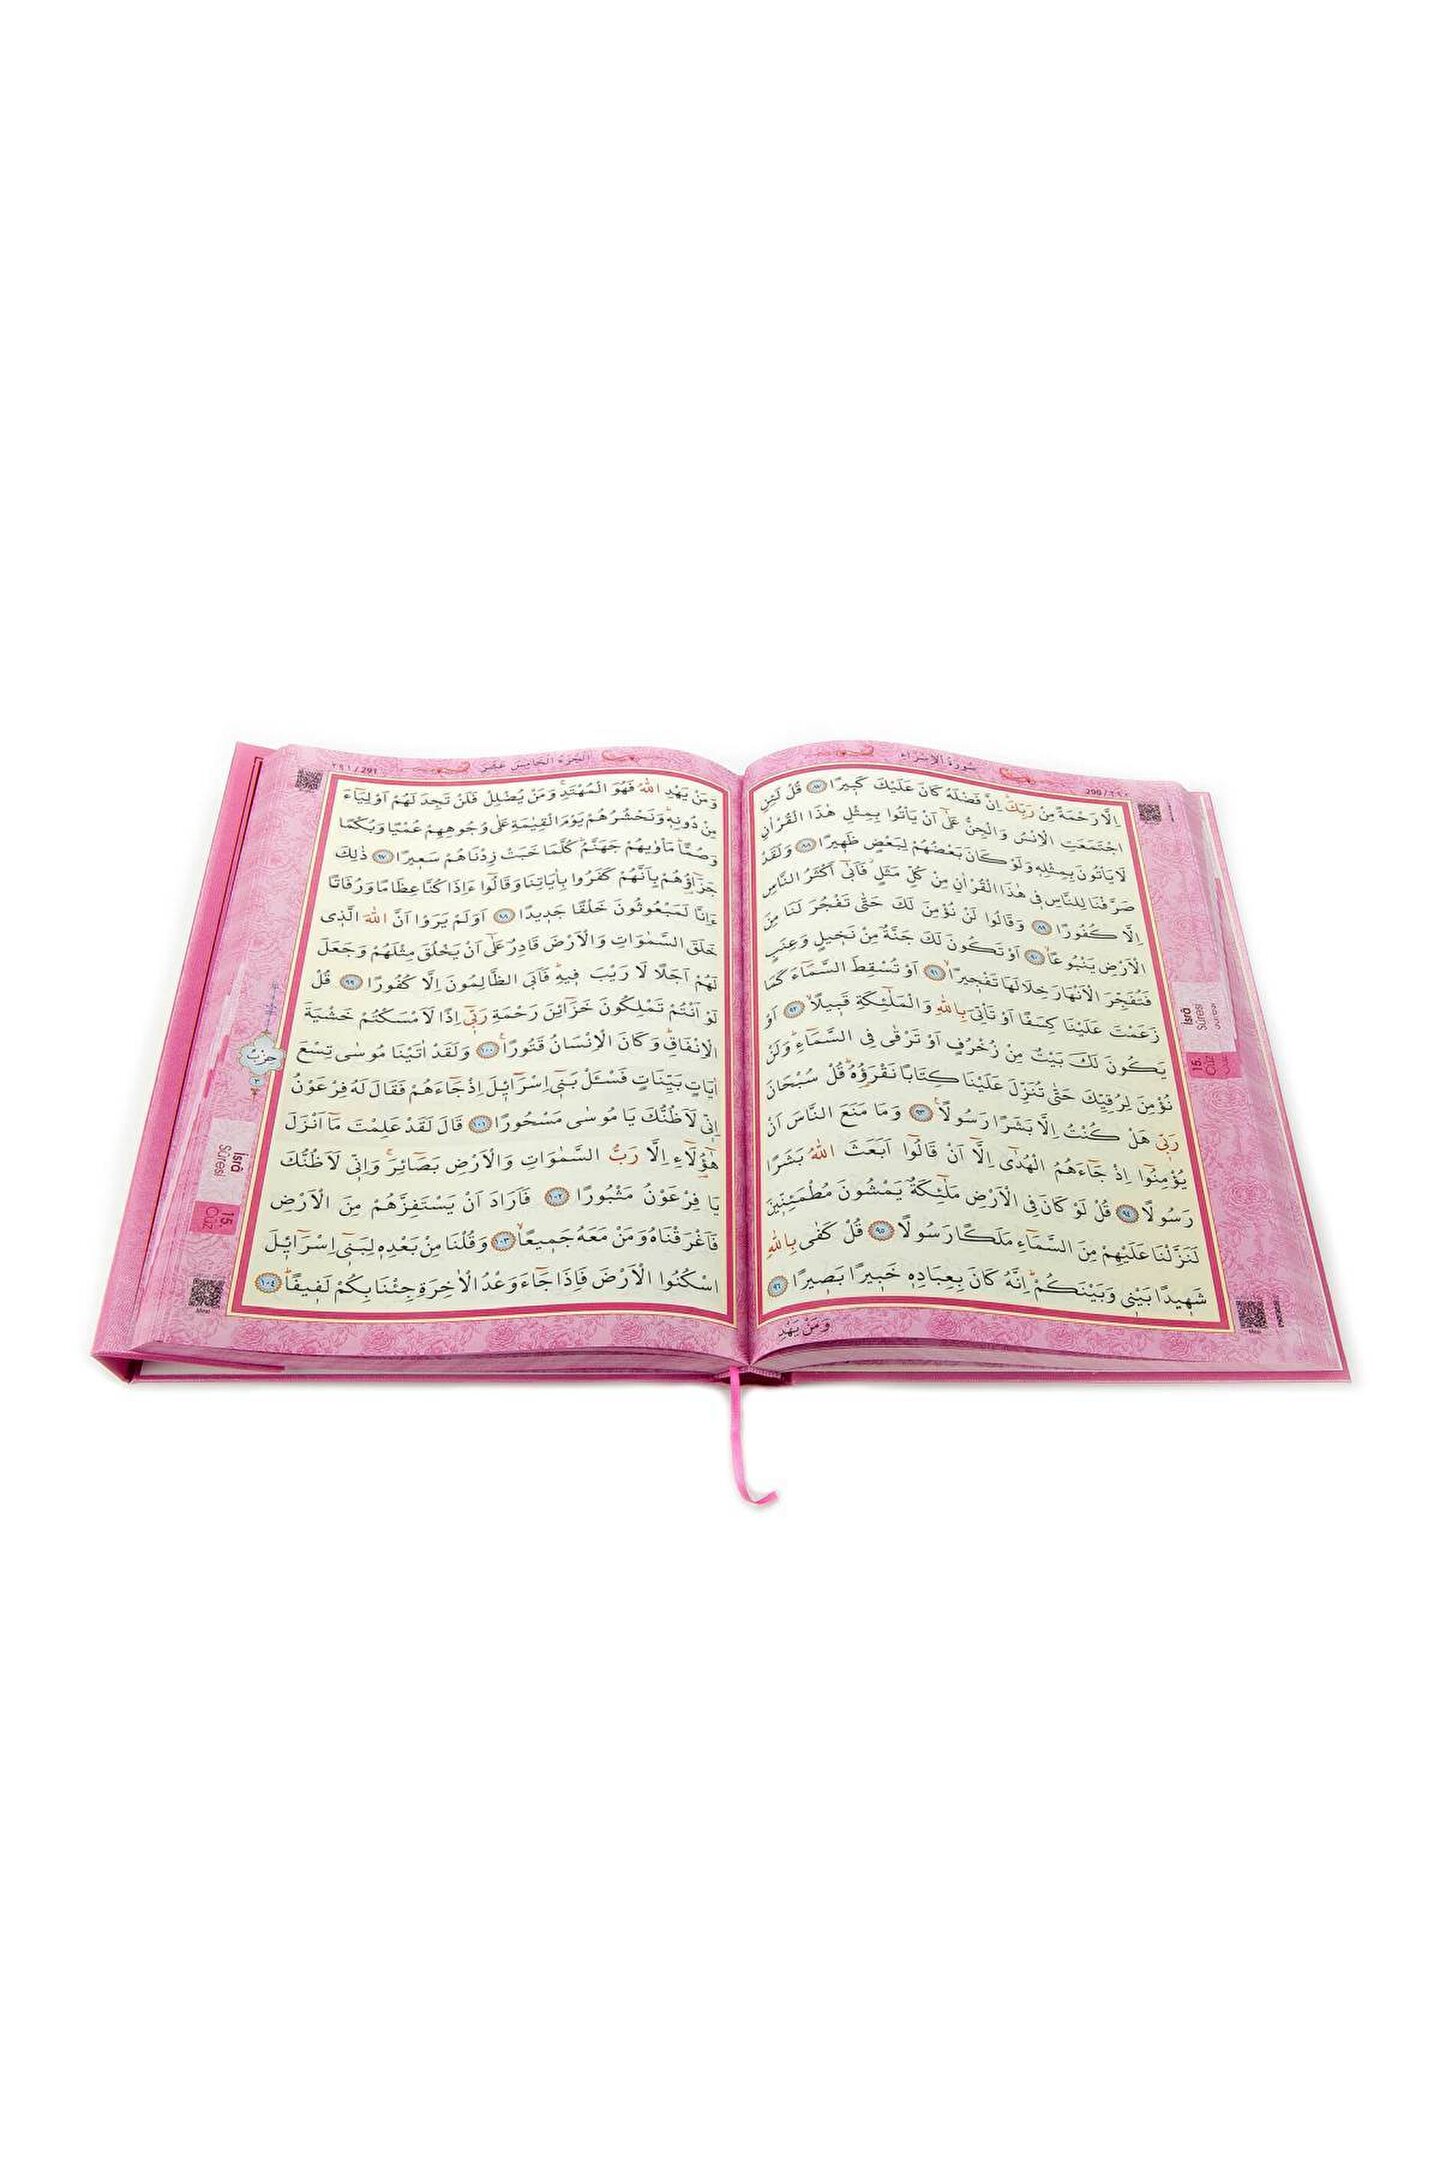 سُورَةُ الْاِسْرَاءِ
290 / ٢٩٠
اِلَّا رَحْمَةً مِنْ رَبِّكَ اِنَّ فَضْلَهُ كَانَ عَلَيْكَ كَبٖيرًا ﴿٨٧﴾ قُلْ لَئِنِ
اجْتَمَعَتِ الْاِنْسُ وَالْجِنُّ عَلٰٓى اَنْ يَأْتُوا بِمِثْلِ هٰذَا الْقُرْاٰنِ
لَا يَأْتُونَ بِمِثْلِهٖ وَلَوْ كَانَ بَعْضُهُمْ لِبَعْضٍ ظَهٖيرًا ﴿٨٨﴾ وَلَقَدْ
صَرَّفْنَا لِلنَّاسِ فٖي هٰذَا الْقُرْاٰنِ مِنْ كُلِّ مَثَلٍ فَاَبٰٓى اَكْثَرُ النَّاسِ
اِلَّا كُفُورًا ﴿٨٩﴾ وَقَالُوا لَنْ نُؤْمِنَ لَكَ حَتّٰى تَفْجُرَ لَنَا مِنَ
الْاَرْضِ يَنْبُوعًا ﴿٩٠﴾ اَوْ تَكُونَ لَكَ جَنَّةٌ مِنْ نَخٖيلٍ وَعِنَبٍ
فَتُفَجِّرَ الْاَنْهَارَ خِلَالَهَا تَفْجٖيرًا ﴿٩١﴾ اَوْ تُسْقِطَ السَّمَٓاءَ كَمَا
زَعَمْتَ عَلَيْنَا كِسَفًا اَوْ تَأْتِيَ بِاللّٰهِ وَالْمَلٰٓئِكَةِ قَبٖيلًا ﴿٩٢﴾ اَوْ
يَكُونَ لَكَ بَيْتٌ مِنْ زُخْرُفٍ اَوْ تَرْقٰى فِي السَّمَٓاءِ وَلَنْ
نُؤْمِنَ لِرُقِيِّكَ حَتّٰى تُنَزِّلَ عَلَيْنَا كِتَابًا نَقْرَؤُهُ قُلْ سُبْحَانَ
رَبّٖي هَلْ كُنْتُ اِلَّا بَشَرًا رَسُولًا ﴿٩٣﴾ وَمَا مَنَعَ النَّاسَ اَنْ
يُؤْمِنُٓوا اِذْ جَٓاءَهُمُ الْهُدٰٓى اِلَّٓا اَنْ قَالُٓوا اَبَعَثَ اللّٰهُ بَشَرًا
رَسُولًا ﴿٩٤﴾ قُلْ لَوْ كَانَ فِي الْاَرْضِ مَلٰٓئِكَةٌ يَمْشُونَ مُطْمَئِنّٖينَ
لَنَزَّلْنَا عَلَيْهِمْ مِنَ السَّمَٓاءِ مَلَكًا رَسُولًا ﴿٩٥﴾ قُلْ كَفٰى بِاللّٰهِ
شَهٖيدًا بَيْنٖي وَبَيْنَكُمْ اِنَّهُ كَانَ بِعِبَادِهٖ خَبٖيرًا بَصٖيرًا ﴿٩٦﴾
وَمَنْ يَهْدِ
İsrâ
Sûresi
15.
Cüz
Meal
اَلْجُزْءُ الْخَامِسَ عَشَرَ
٢٩١ / 291
وَمَنْ يَهْدِ اللّٰهُ فَهُوَ الْمُهْتَدِ وَمَنْ يُضْلِلْ فَلَنْ تَجِدَ لَهُمْ اَوْلِيَٓاءَ
مِنْ دُونِهٖ وَنَحْشُرُهُمْ يَوْمَ الْقِيٰمَةِ عَلٰى وُجُوهِهِمْ عُمْيًا وَبُكْمًا
وَصُمًّا مَأْوٰيهُمْ جَهَنَّمُ كُلَّمَا خَبَتْ زِدْنَاهُمْ سَعٖيرًا ﴿٩٧﴾ ذٰلِكَ
جَزَٓاؤُهُمْ بِاَنَّهُمْ كَفَرُوا بِاٰيَاتِنَا وَقَالُٓوا ءَاِذَا كُنَّا عِظَامًا وَرُفَاتًا
ءَاِنَّا لَمَبْعُوثُونَ خَلْقًا جَدٖيدًا ﴿٩٨﴾ اَوَلَمْ يَرَوْا اَنَّ اللّٰهَ الَّذٖي
خَلَقَ السَّمٰوَاتِ وَالْاَرْضَ قَادِرٌ عَلٰٓى اَنْ يَخْلُقَ مِثْلَهُمْ وَجَعَلَ
لَهُمْ اَجَلًا لَا رَيْبَ فٖيهِ فَاَبَى الظَّالِمُونَ اِلَّا كُفُورًا ﴿٩٩﴾ قُلْ
لَوْ اَنْتُمْ تَمْلِكُونَ خَزَٓائِنَ رَحْمَةِ رَبّٖٓي اِذًا لَاَمْسَكْتُمْ خَشْيَةَ
الْاِنْفَاقِ وَكَانَ الْاِنْسَانُ قَتُورًا ﴿١٠٠﴾ وَلَقَدْ اٰتَيْنَا مُوسٰى تِسْعَ
اٰيَاتٍ بَيِّنَاتٍ فَسْـَٔلْ بَنٖٓي اِسْرَٓائٖلَ اِذْ جَٓاءَهُمْ فَقَالَ لَهُ فِرْعَوْنُ
اِنّٖي لَاَظُنُّكَ يَا مُوسٰى مَسْحُورًا ﴿١٠١﴾ قَالَ لَقَدْ عَلِمْتَ مَٓا اَنْزَلَ
هٰٓؤُلَٓاءِ اِلَّا رَبُّ السَّمٰوَاتِ وَالْاَرْضِ بَصَٓائِرَ وَاِنّٖي لَاَظُنُّكَ
يَا فِرْعَوْنُ مَثْبُورًا ﴿١٠٢﴾ فَاَرَادَ اَنْ يَسْتَفِزَّهُمْ مِنَ الْاَرْضِ
فَاَغْرَقْنَاهُ وَمَنْ مَعَهُ جَمٖيعًا ﴿١٠٣﴾ وَقُلْنَا مِنْ بَعْدِهٖ لِبَنٖٓي اِسْرَٓائٖلَ
اسْكُنُوا الْاَرْضَ فَاِذَا جَٓاءَ وَعْدُ الْاٰخِرَةِ جِئْنَا بِكُمْ لَفٖيفًا ﴿١٠٤﴾
حِزْبٌ
٣
İsrâ
Sûresi
15.
Cüz
Meal